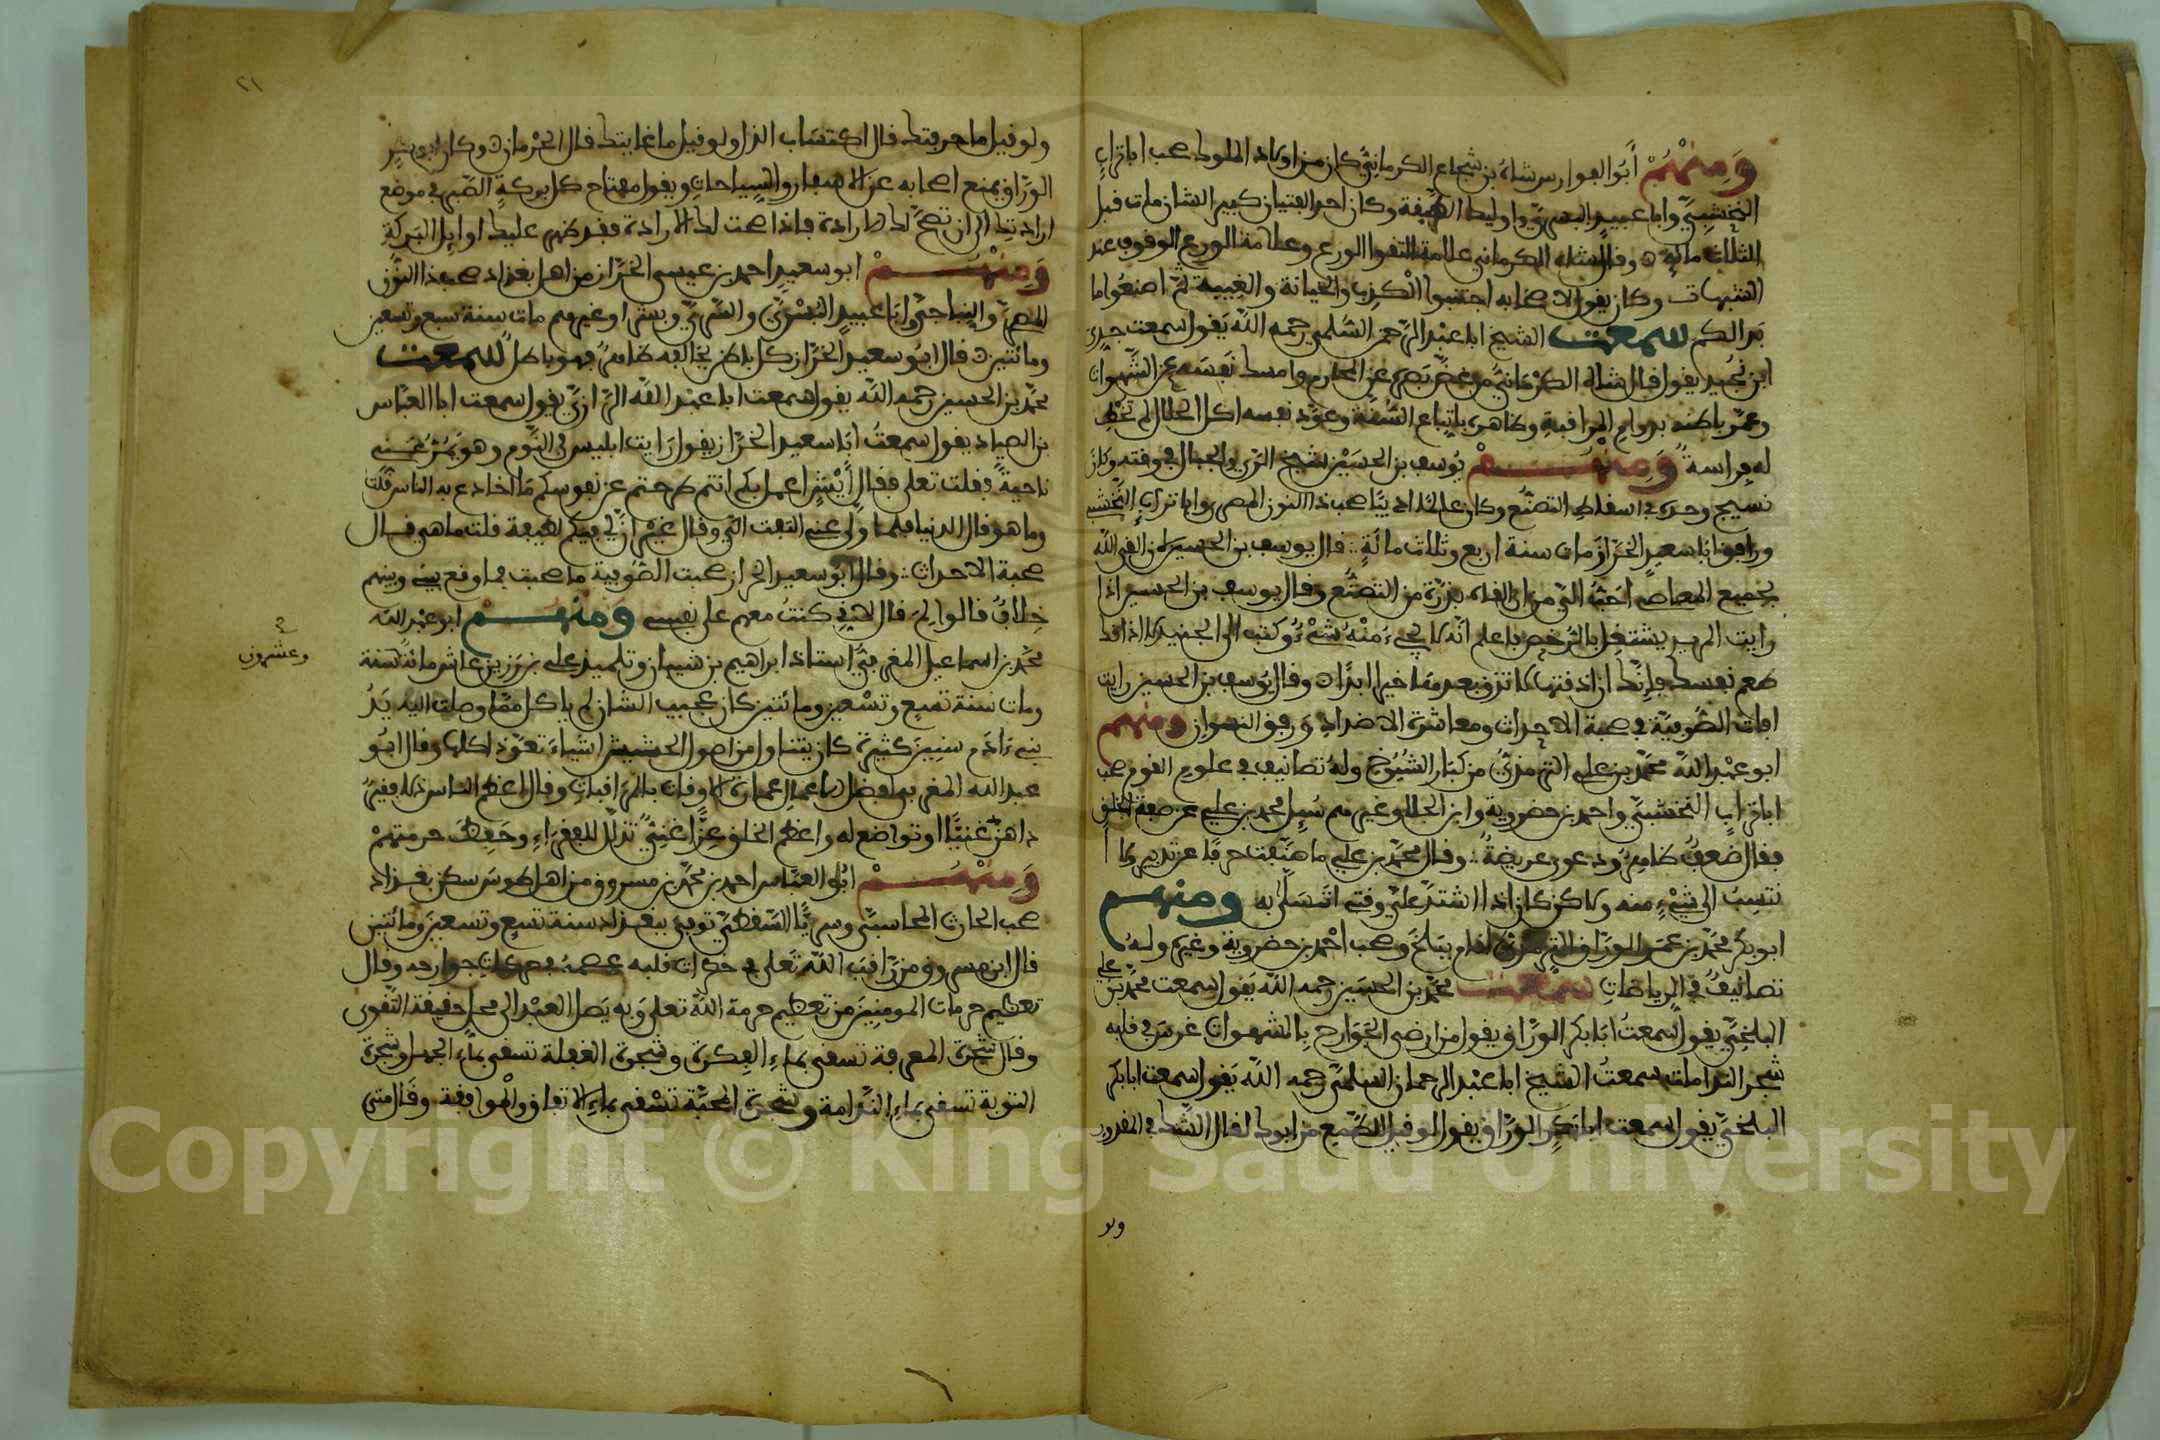 وَمِنْهُمْ أَبُو الفوارس شاه بن شجاع الكرماني كان من اولاد الملوك صحب ابا تراب
النخشبي وابا عبيد البسري واوليك الطبقة وكان احد الفتيان كبير الشان مات قبل
الثلاث مائة وقال شاه الكرماني علامة التقوا الورع وعلامة الورع الوقوف عند
الشبهات وكان يقول لاصحابه اجتنبوا الكذب والخيانة والغيبة ثم اصنعوا ما
بدا لكم سمعت الشيخ ابا عبد الرحمن السلمي رحمه الله يقول سمعت جدي
ابن نجيد يقول قال شاه الكرماني من غض بصره عن المحارم وامسك نفسه عن الشهوات
وعمر باطنه بدوام المراقبة وظاهره باتباع السنة وعود نفسه اكل الحلال لم تخط
له فراسة وَمِنْهُمْ يوسف بن الحسين شيخ الري والجبال في وقته وكان
نسيج وحده في اسقاط التصنع وكان عالما اديبا صحب ذا النون المصري وابا تراب النخشبي
ورافق ابا سعيد الخراز مات سنة اربع وثلاث مائة قال يوسف بن الحسين لان القى الله
بجميع المعاصي احب الي من ان القاه بذرة من التصنع وقال يوسف بن الحسين اذا
رايت المريد يشتغل بالرخص فاعلم انه لا يجيء منه شيء وكتب الى الجنيد لا اذاقك
طعم نفسك فانك ان ذقتها لا تذوق بعدها خيرا ابدا وقال يوسف بن الحسين رايت
افات الصوفية في صحبة الاحداث ومعاشرة الاضداد ورفق النسوان ومنهم
ابو عبد الله محمد بن علي الترمذي من كبار الشيوخ وله تصانيف في علوم القوم صحب
ابا تراب النخشبي واحمد بن خضروية وابن الجلا وغيرهم سئل محمد بن علي عن صفة الخلق
فقال ضعف ظاهر ودعوى عريضة وقال محمد بن علي ما صنفت حرفا عن تدبير ولا
نتسب الي شيء منه ولاكن كان اذا اشتد علي وقتي اتسلى به ومنهم
ابو بكر محمد بن عمر الوراق الترمذي اقام ببلخ وصحب احمد بن خضروية وغيره وله
تصانيف في الرياضات سمعت محمد بن الحسين رحمه الله يقول سمعت محمد بن علي
البلخي يقول سمعت ابا بكر الوراق يقول من ارضى الجوارح بالشهوات غرس في قلبه
شجر الندامات سمعت الشيخ ابا عبد الرحمان السلمي رحمه الله يقول سمعت ابا بكر
البلخي يقول سمعت ابا بكر الوراق يقول لو قيل للطمع من ابوك لقال الشك في المقدور
ولو
٢١
ولو قيل ما حرفتك قال اكتساب الذل ولو قيل ما غايتك قال الحرمان وكان ابو بكر
الوراق يمنع اصحابه عن الاسفار والسياحات ويقول مفتاح كل بركة الصبر في موضع
ارادتك الى ان تصح لك الارادة فاذا صحت لك الارادة فقد ظهر عليك اوايل البركة
وَمِنْهُمْ ابو سعيد احمد بن عيسى الخراز من اهل بغداد صحب ذا النون
المصري والنباجي وابا عبيد البسري والسري وبشرا وغيرهم مات سنة سبع وتسعين
ومائتين قال ابو سعيد الخراز كل باطن يخالفه ظاهر فهو باطل سمعت
محمد بن الحسين رحمه الله يقول سمعت ابا عبد الله الرازي يقول سمعت ابا العباس
بن الصياد يقول سمعت ابا سعيد الخراز يقول رايت ابليس في النوم وهو يمر عني
ناحية فقلت تعلى فقال أيش اعمل بكم انتم طرحتم عن نفوسكم ما اخادع به الناس قلت
وما هو قال الدنيا فلما ولى عني التفت الي وقال غير ان لي فيكم لطيفة قلت ما هي قال
صحبة الاحداث وقال ابو سعيد الخراز صحبت الصوفية ما صحبت فما وقع بيني وبينهم
خلاف قالوا لم قال لاني كنت معهم على نفسي ومنهم ابو عبد الله
محمد بن اسماعيل المغربي استاذ ابراهيم بن شيبان وتلميذ علي بن رزين عاش مائة سنة
وعشرون
ومات سنة تسع وتسعين ومائتين كان عجيب الشان لم ياكل مما وصلت اليه يد
بني ءادم سنين كثيرة كان يتناول من اصول الحشيش اشياء تعود اكلها وقال ابو
عبد الله المغربي افضل الاعمال عمارة الاوقات بالمراقبات وقال اعظم الناس ذلا فقير
داهن غنيا او تواضع له واعظم الخلق عزا غني تذلل للفقراء وحفظ حرمتهم
وَمِنْهُمْ ابو العباس احمد بن محمد بن مسروق من اهل طوس سكن بغداد
صحب الحارث المحاسبي وسريا السقطي توفي ببغداد سنة تسع وتسعين ومائتين
قال ابن مسروق من راقب الله تعلى في خطرات قلبه عصمه في حركات جوارحه وقال
تعظيم حرمات المومنين من تعظيم حرمة الله تعلى وبه يصل العبد الى محل حقيقة التقوى
وقال شجرة المعرفة تسقى بماء الفكرة وشجرة الغفلة تسقى بماء الجهل وشجرة
التوبة تسقى بماء الندامة وشجرة المحبة تسقى بماء الاتفاق والموافقة وقال متى
Copyright © King Saud University